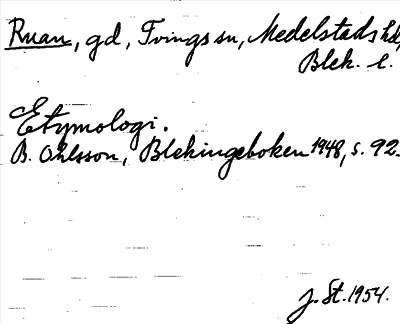 Ruan, gd, Tvings sn, Medelstads hd,
Blek. l.
Etymologi.
B. Ohlsson, Blekingeboken 1948, s. 92.
J. St. 1954.